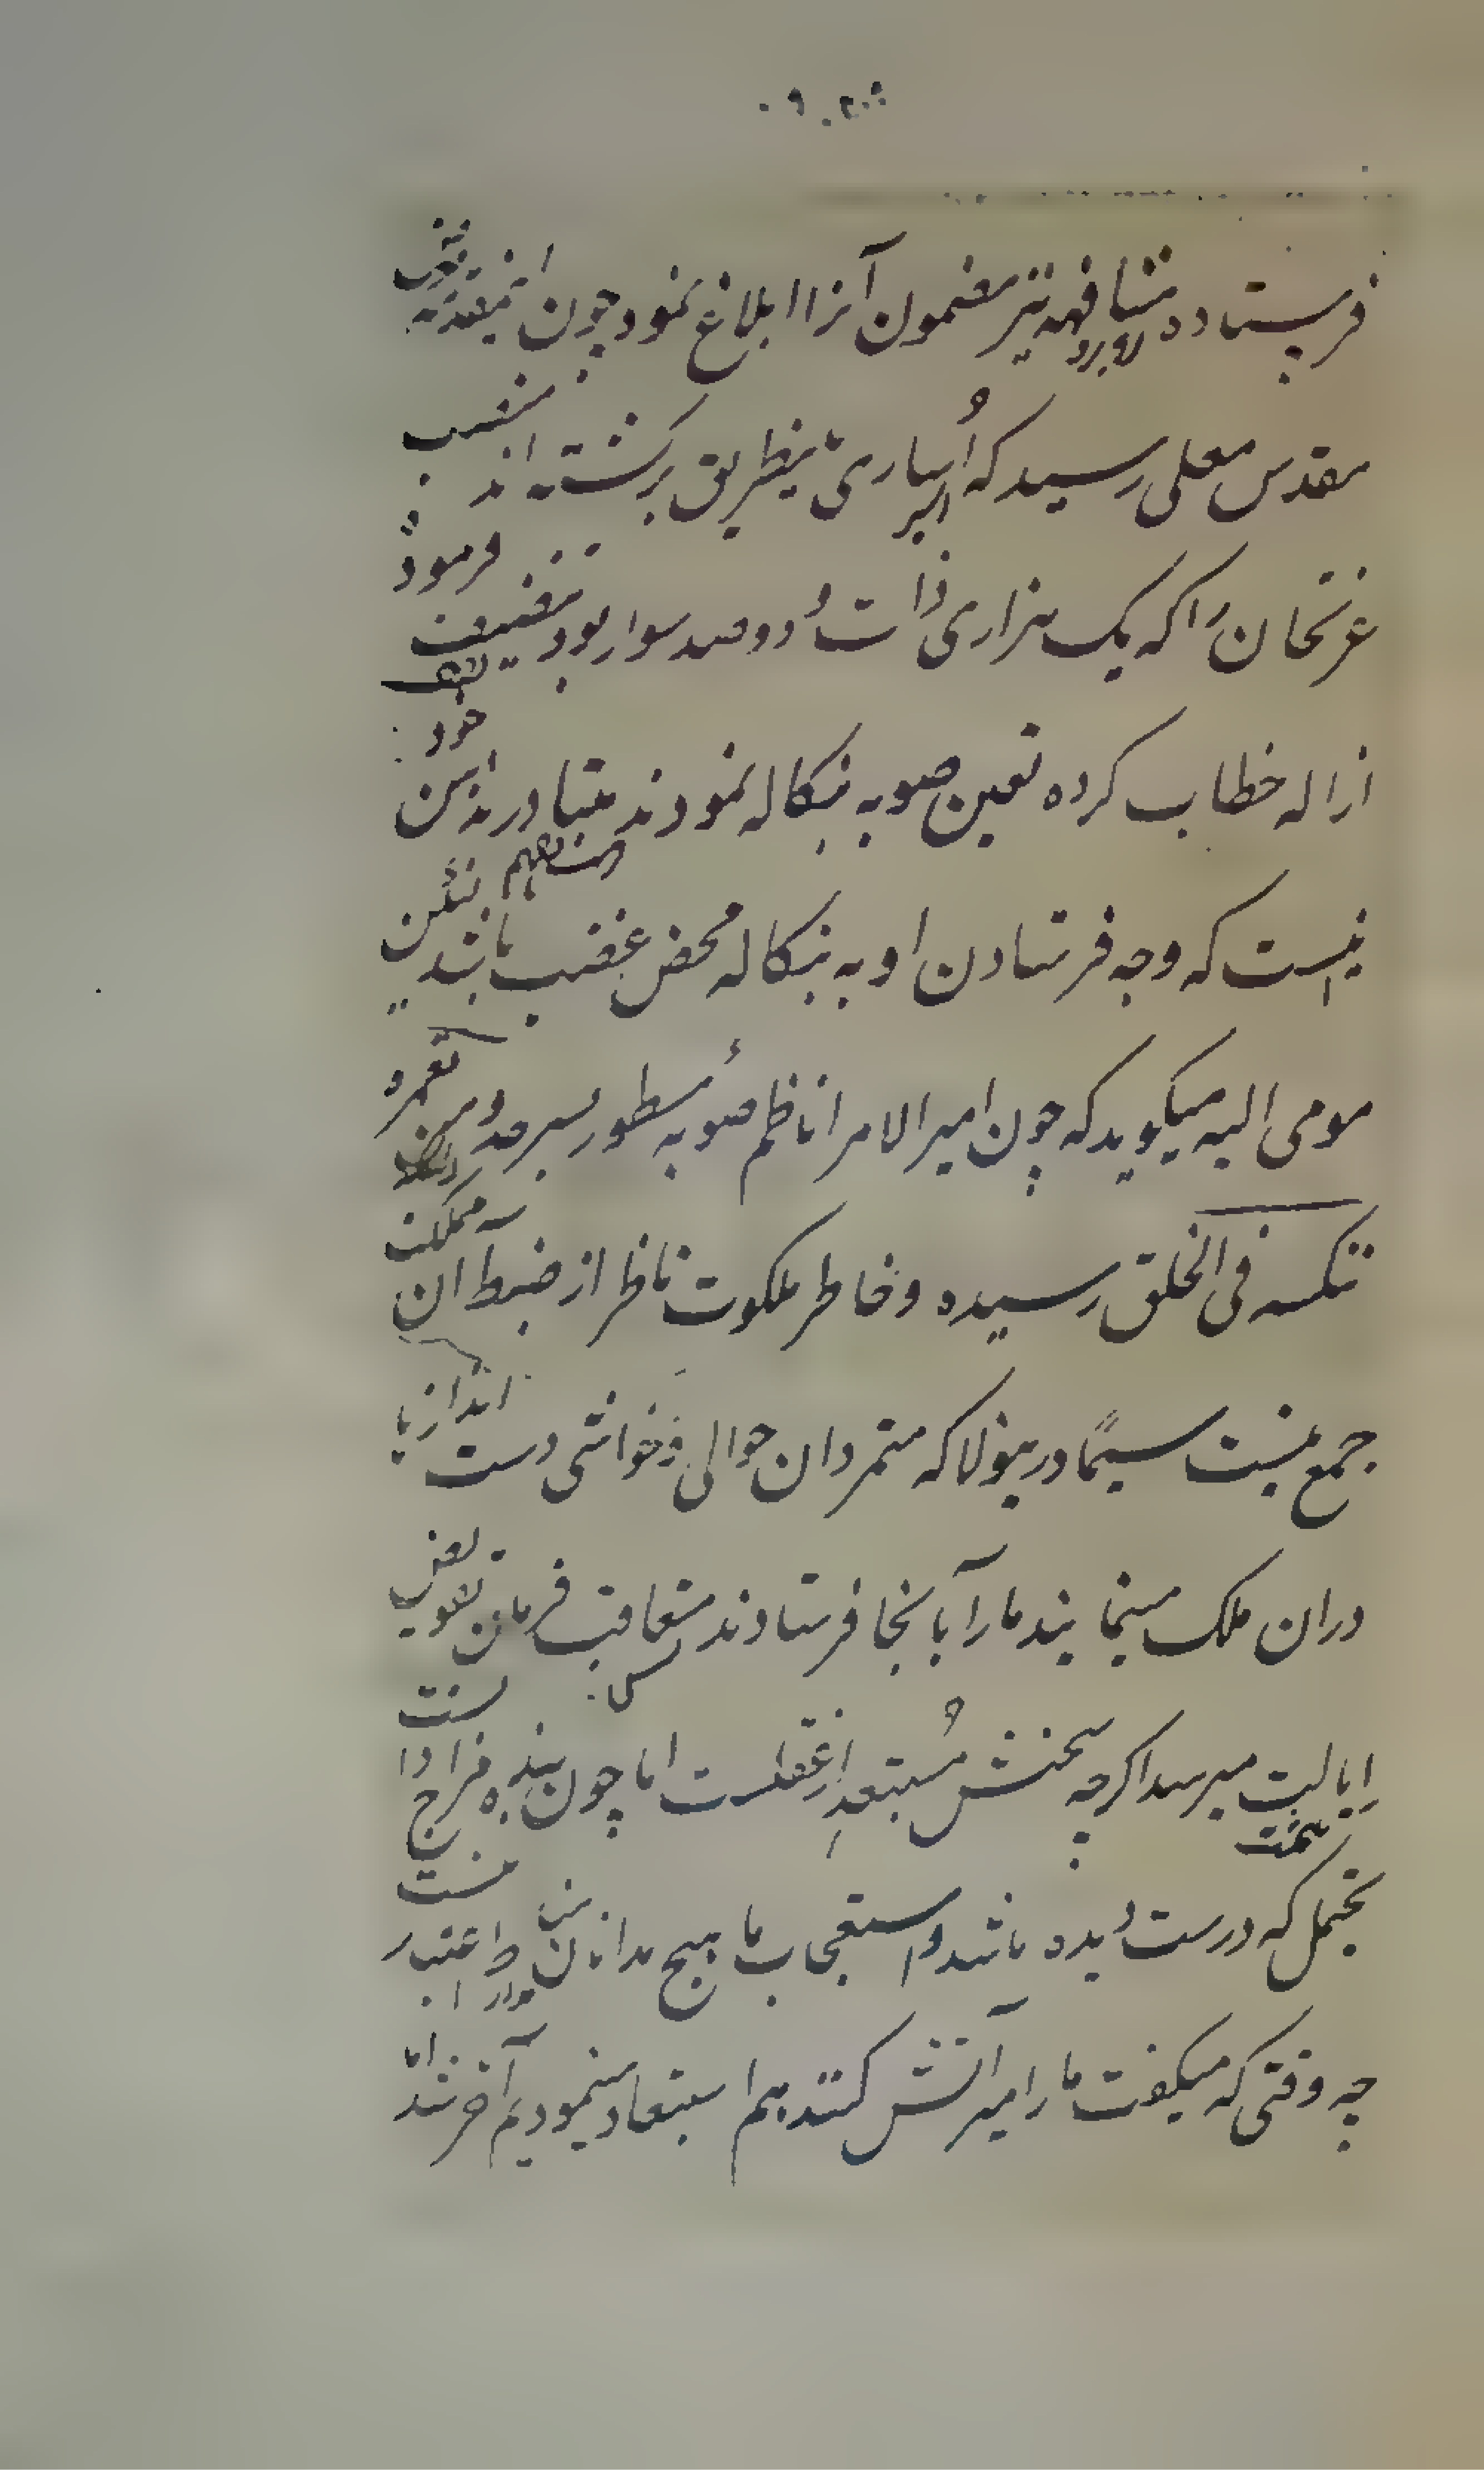 فرستاده مشافهه نیز مضمون آنرا ابلاغ نمود چون اینمقدمه بعرض
روبرو
مقدس معلی رسید که اُساری بایں طریق برگشته اند منصب
عزتخان را که یک هزاری ذات و دو صد سوار بود تضعیف فرموده
ازاله خطاب کرده تعین صوبه بنگاله نمودند متبادر ذهن خود
نیست که وجه فرستادن او به بنگاله محض غضب باشد لیکن
مومی الیه میگوید که چون امیرالامرا ناظم صوبه مسطور بسرحد و من نعمره
ننکسه فی الخلق رسیده و خاطر ملکوت ناظر از ضبط آن مملکت
جمع نیست سیما درینولا که متمردان حوالی و حواشی دست اندازیها
دران ملک مینمایند ما را بآنجا فرستادند متعاقب فرمان تفویض
ایالت میرسد اگرچه سخنش مُستبعد از عقلست اما چون بنده مزاج دانست
یحتمل که درست دیده باشد و استعجاب ما هیچ مدانان را اعتبار نیست
چه وقتی که میگفت ما را میر آتش کنند هم استبعاد مینمودیم آخر شد اما